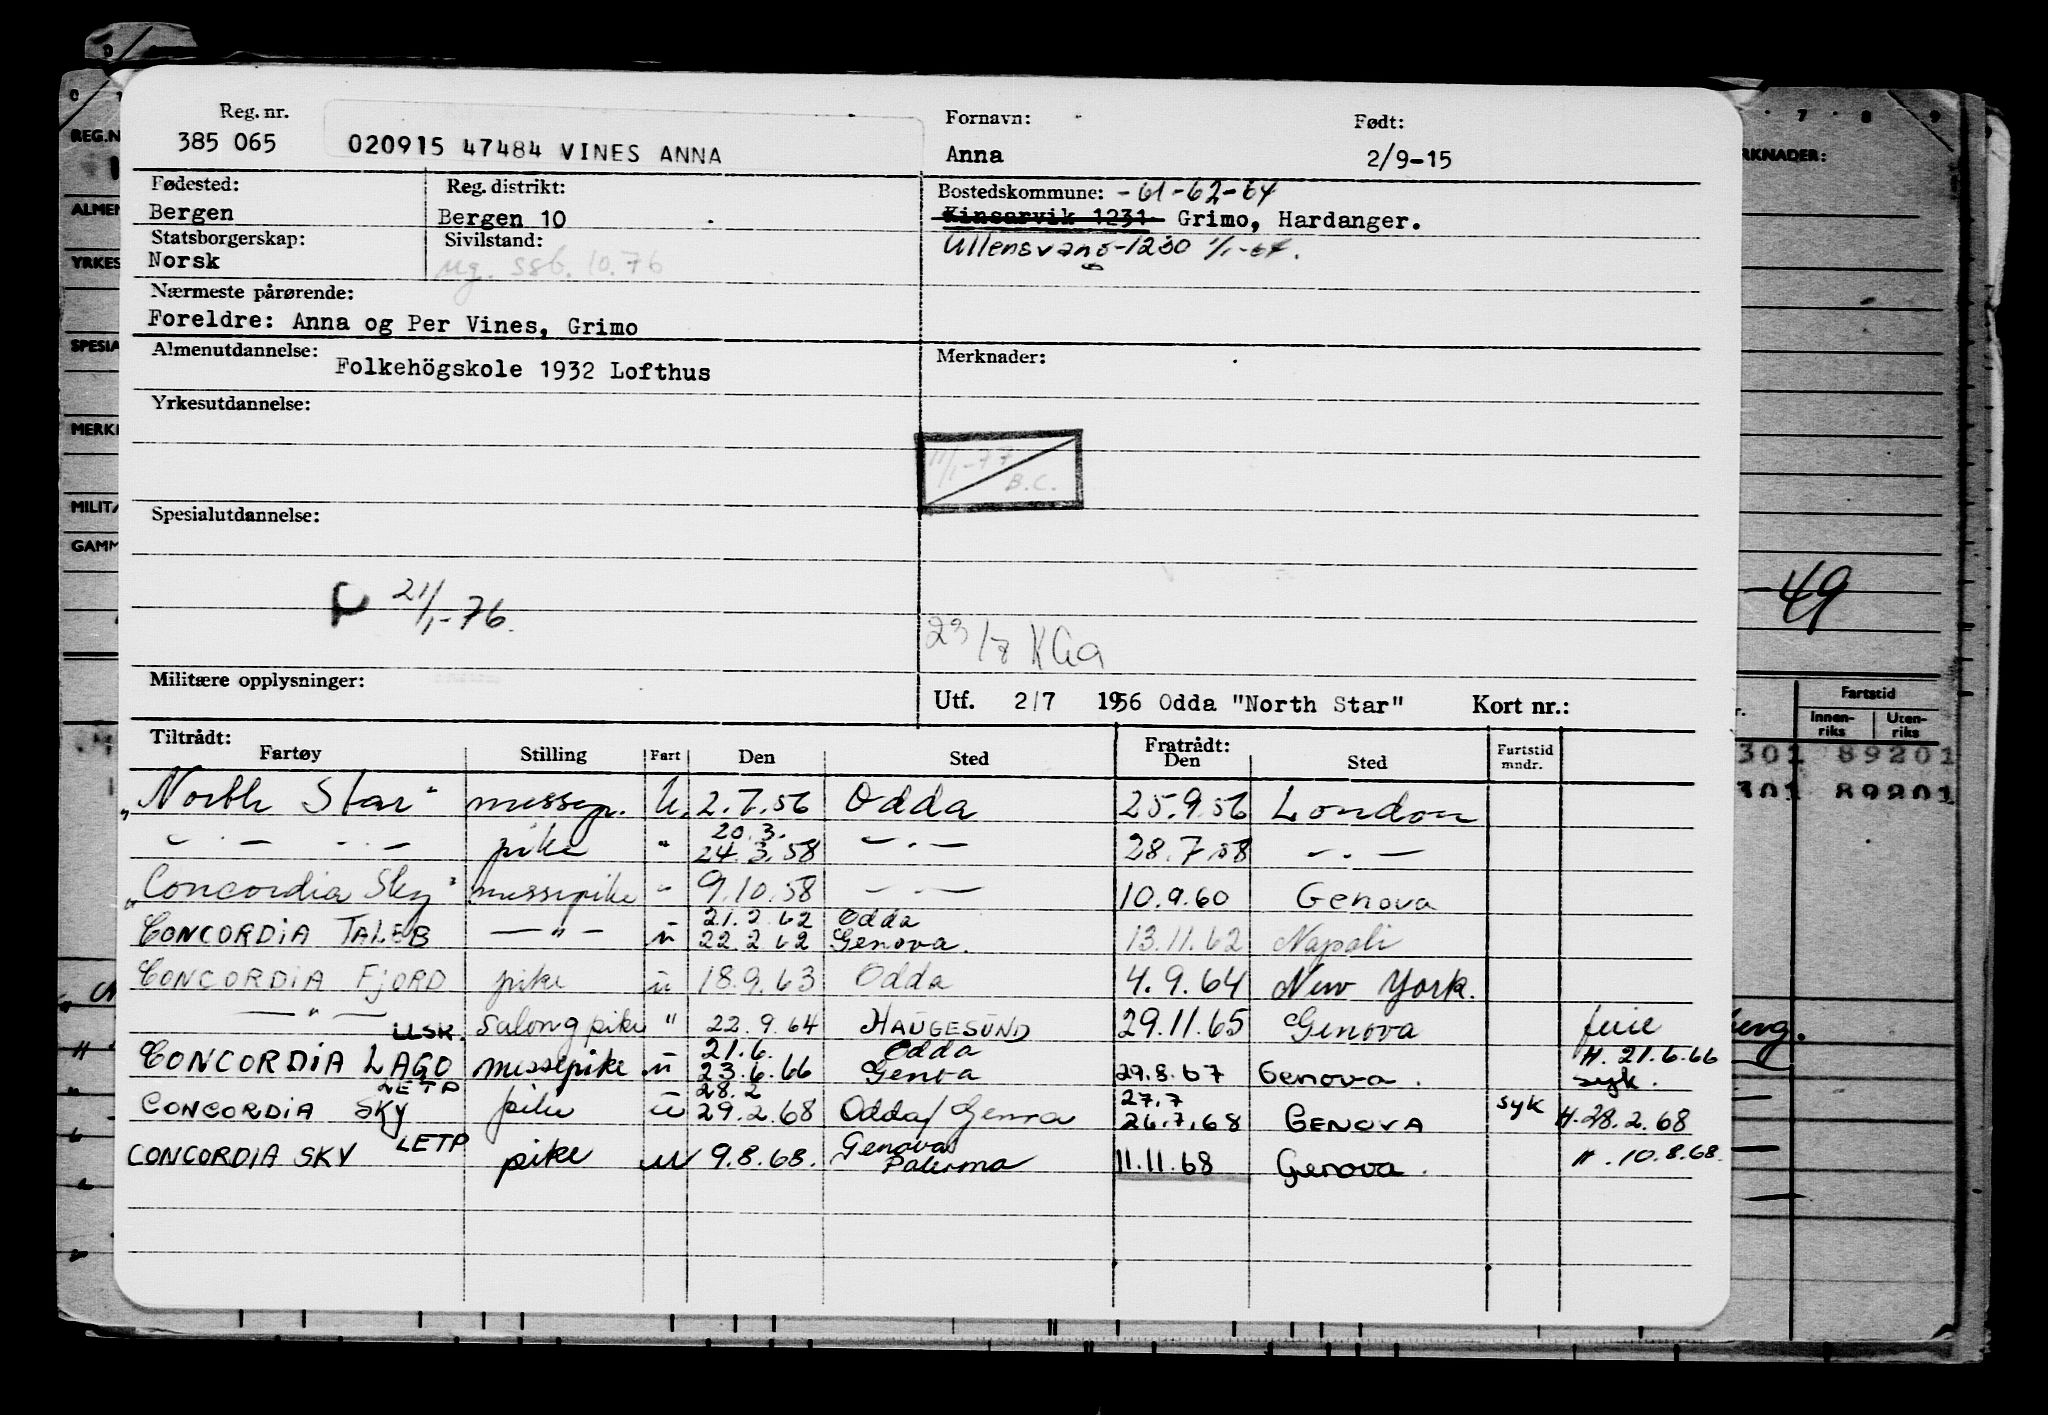 Reg. nr.
385 065
020915 47484 VINES ANNA
Fornavn:
Anna
Født:
2/9-15
Fødested:
Bergen
Reg. distrikt:
Bergen 10
Bostedskommune: -61-62-64
Kinsarvik 1231 Grimo, Hardanger.
Ullensvang-1230 1/1-64.
Statsborgerskap:
Norsk
Sivilstand:
ug. ssb. 10.76
Nærmeste pårørende:
Foreldre: Anna og Per Vines, Grimo
Almenutdannelse:
Folkehögskole 1932 Lofthus
Merknader:
Yrkesutdannelse:
11/1-77
B.C.
Spesialutdannelse:
21/1-76.
23/7 KGa
Militære opplysninger:
Utf. 2/7 1956 Odda "North Star" Kort nr.:
Tiltrådt: Fratrådt:
Fartøy Stilling Fart Den Sted Den Sted Fartstid mndr.
"North Star" messep. U. 2.7.56 Odda 25.9.56 London
— . — — . — pike " 20.3. 24.3.58 — . — 28.7.58 — . —
"Concordia Sky" messepike " 9.10.58 — . — 10.9.60 Genova
CONCORDIA TALEB — " — u 21.2.62 22.2.62 Odda Genova. 13.11.62 Napoli
CONCORDIA FJORD pike u 18.9.63 Odda 4.9.64 New York.
— " — salongpike " 22.9.64 HAUGESUND 29.11.65 Genova ferie
LLSR.
CONCORDIA LAGO messepike u 21.6. 23.6.66 Odda Genoa 29.8.67 Genova. H. 21.6.66 syk.
LETP
CONCORDIA SKY pike u 28.2 29.2.68 Odda/Genoa 27.7 26.7.68 GENOVA syk H. 28.2.68
LETP
CONCORDIA SKY pike u 9.8.68. Genova Palerma 11.11.68 Genova. H. 10.8.68.
REG.N
ALMEN
YRKES
SPESIA
MERKI
MILITÆ
GAMM
7 8 9
RKNADER:
-49
Fartstid
Innen-riks
Uten-riks
301 89201
301 89201
berg.